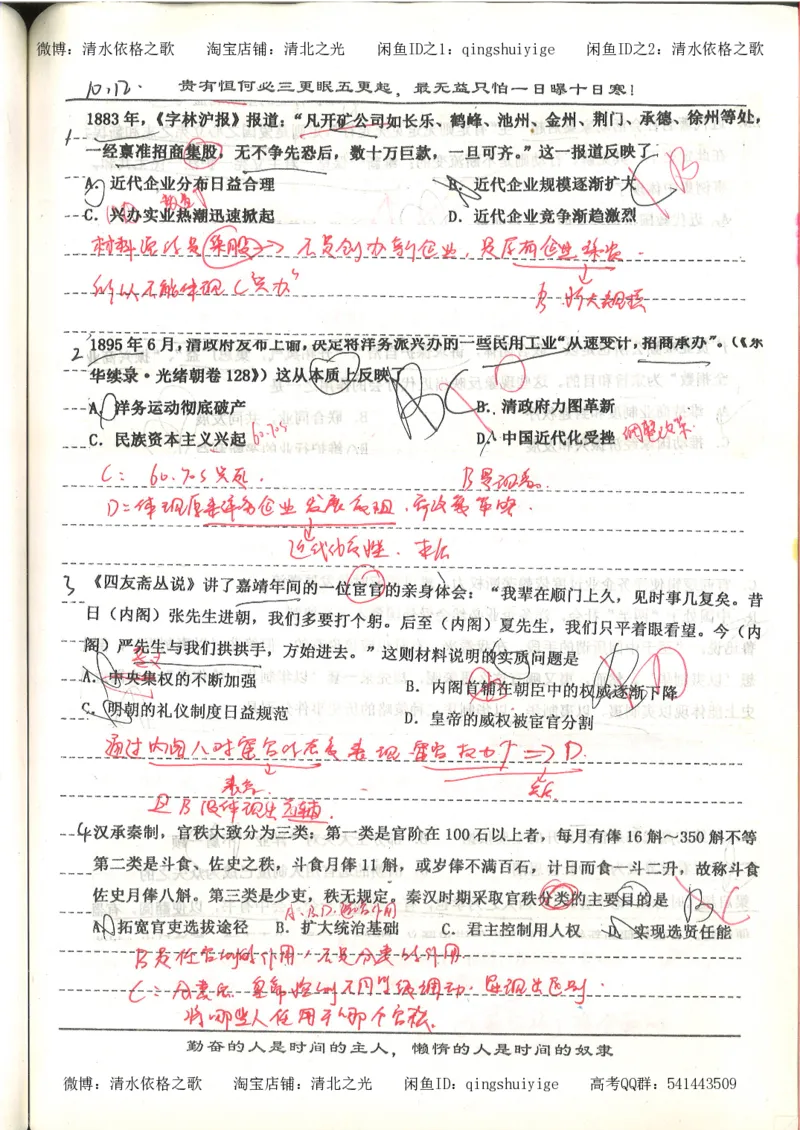 微博：清水依格之歌 淘宝店铺：清北之光 闲鱼ID之1：qingshuiyige 闲鱼ID之2：清水依格之歌
10.12. 贵有恒何必三更眠五更起，最无益只怕一日曝十日寒！
1883年，《字林沪报》报道：“凡开矿公司如长乐、鹤峰、池州、金州、荆门、承德、徐州等处，
1 一经禀准招商集股，无不争先恐后，数十万巨款，一旦可齐。”这一报道反映了 C B
A. 近代企业分布日益合理 B. 近代企业规模逐渐扩大
C. 兴办实业热潮迅速掀起 D. 近代企业竞争渐趋激烈
材料说的是集股 => 不是创办新企业，是原有企业
所以不能体现C“兴办”
B. 扩大规模
2 1895年6月，清政府发布上谕，决定将洋务派兴办的一些民用工业“从速变计，招商承办”。（《东
华续录·光绪朝卷128》）这从本质上反映了
A. 洋务运动彻底破产 B. 清政府力图革新
C. 民族资本主义兴起 60.70s D. 中国近代化受挫
C： 60.70s兴起. B是现象.
D：体现原来洋务企业发展
3 《四友斋丛说》讲了嘉靖年间的一位宦官的亲身体会：“我辈在顺门上久，见时事几复矣。昔
日（内阁）张先生进朝，我们多要打个躬。后至（内阁）夏先生，我们只平着眼看望。今（内
阁）严先生与我们拱拱手，方始进去。”这则材料说明的实质问题是 B D
A. 中央集权的不断加强 B. 内阁首辅在朝臣中的权威逐渐下降
C. 明朝的礼仪制度日益规范 D. 皇帝的威权被宦官分割
通过内阁人对宦官的态度表现宦官权力↑ => D
表象. 实质.
且B没体现出首辅.
4 汉承秦制，官秩大致分为三类：第一类是官阶在100石以上者，每月有俸16斛～350斛不等
第二类是斗食、佐史之秩，斗食月俸11斛，或岁俸不满百石，计日而食一斗二升，故称斗食
佐史月俸八斛。第三类是少吏，秩无规定。秦汉时期采取官秩分类的主要目的是 B C
A.B.D.
A. 拓宽官吏选拔途径 B. 扩大统治基础 C. 君主控制用人权 D. 实现选贤任能
B是作用，不是分类的作用
C：分类后，皇帝控制不同等级调动，体现出区别.
将哪些人任用于哪个官秩.
勤奋的人是时间的主人，懒惰的人是时间的奴隶
微博：清水依格之歌 淘宝店铺：清北之光 闲鱼ID：qingshuiyige 高考QQ群：541443509